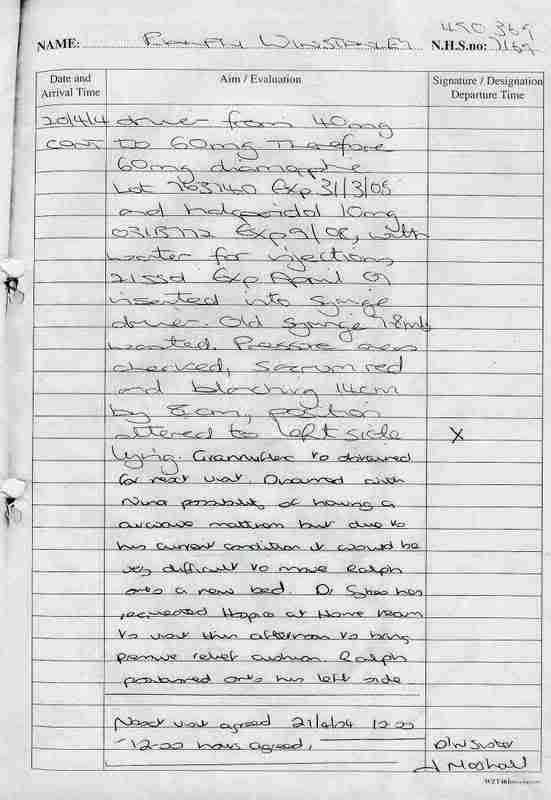 490 369
NAME: Ralph Winstanley N.H.S.no: 7169
Date and Arrival Time
Aim / Evaluation
Signature / Designation Departure Time
20/4/4 driver from 40mg
cont to 60mg Therefore
60mg diamorphine
Lot 763140 Exp 31/3/05
and haloperidol 10mg
Exp 9/06, with
water for injections
Exp April 07
inserted into syringe
driver. Old syringe 1.8mls
wasted. Pressure areas
checked, Sacrum red
and blanching 14cm
by 8cm, position
altered to left side X
lying. Granuflex to obtained
for next visit. Discussed with
Nina possibility of having a
airwave mattress but due to
his current condition it would be
very difficult to move Ralph
onto a new bed. Dr has
requested Hospice at Home team
to visit this afternoon to bring
pressure relief cushion. Ralph
positioned onto his left side
Next visit agreed 21/4/04 12.00
-12-00 hours agreed. D/N Sister
J Marshall